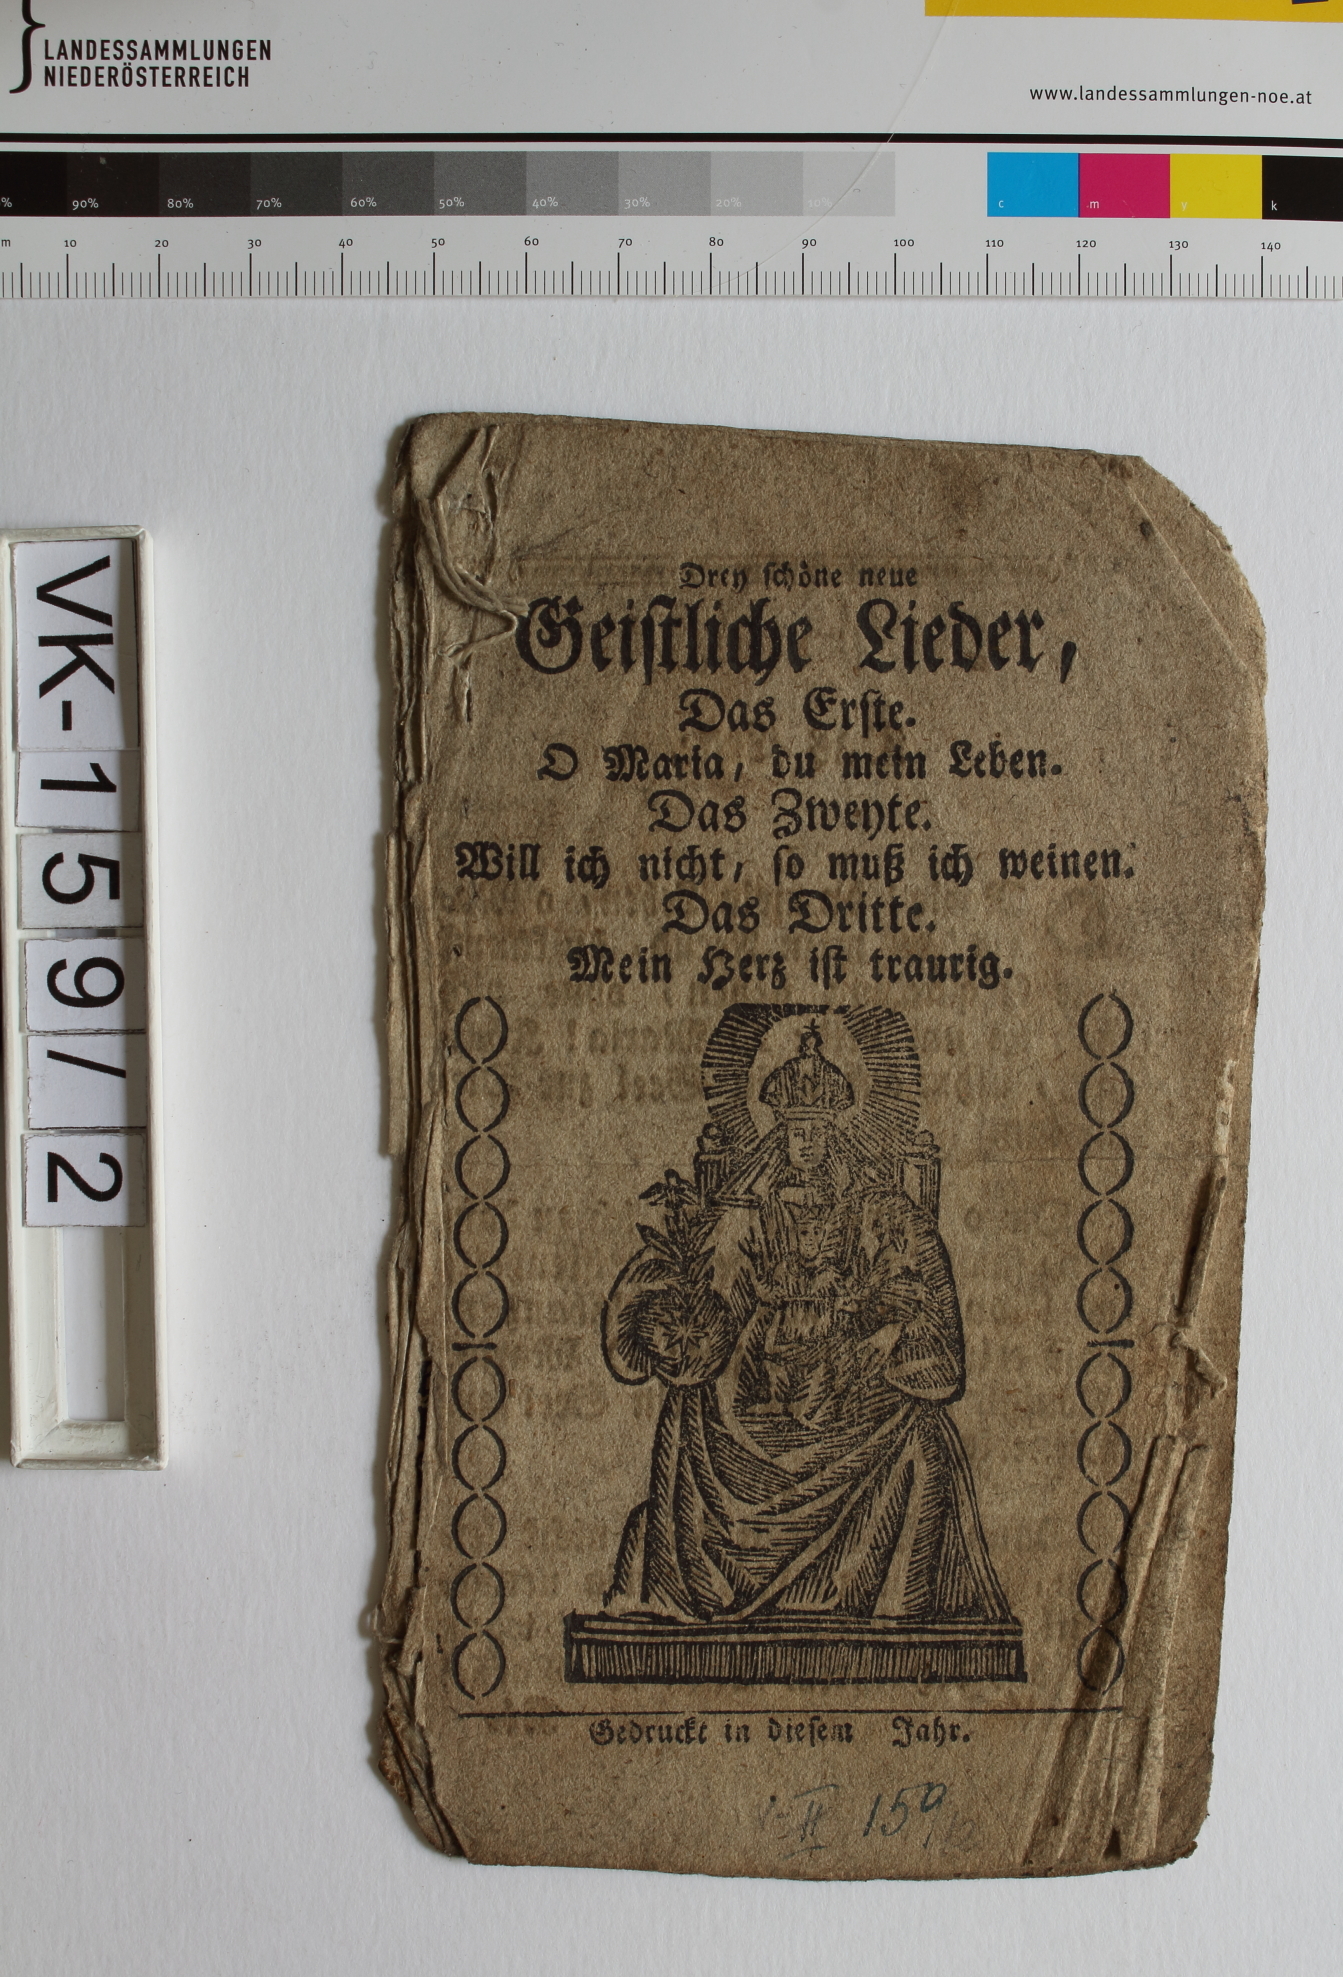 LANDESSAMMLUNGEN
NIEDERÖSTERREICH
www.landessammlungen-noe.at
% 90% 80% 70% 60% 50% 40% 30% 20% 10% c m y k
m 10 20 30 40 50 60 70 80 90 100 110 120 130 140
VK-159/2
Drey schöne neue
Geistliche Lieder,
Das Erste.
O Maria, du mein Leben.
Das Zweyte.
Will ich nicht, so muß ich weinen.
Das Dritte.
Mein Herz ist traurig.
Gedruckt in diesem Jahr.
II 159